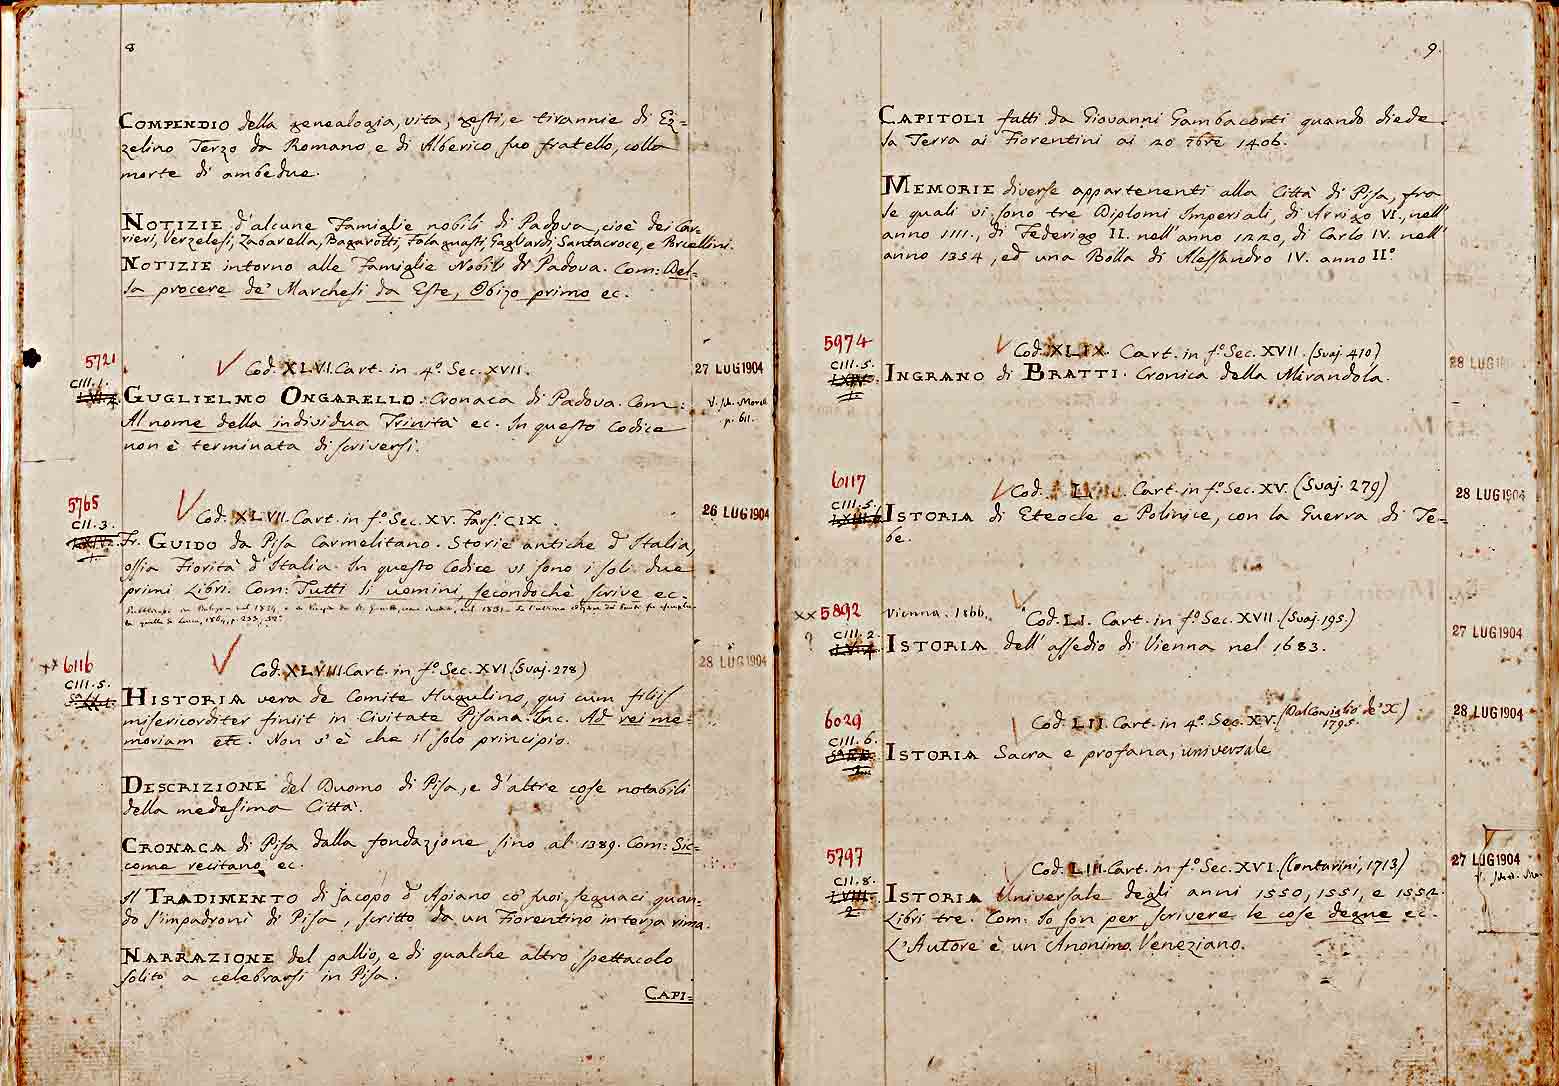 8
COMPENDIO della genealogia, vita, gesti, e tirannie di Ez=
zelino Terzo da Romano e di Alberico suo fratello, colla
morte di ambedue.
NOTIZIE d'alcune Famiglie nobili di Padova, cioè dei Car-
rieri, Verzelesi, Zabarella, Bagarotti, Falaguasti, Gagliardi, Santacroce, e Porcellini.
NOTIZIE intorno alle Famiglie Nobili di Padova. Com: Del-
la procere de' Marchesi da Este, Obizo primo ec.
5721
CIII. 1.
Cod. XLVI. Cart. in 4.º Sec. XVII.
27 LUG 1904
GUGLIELMO ONGARELLO: Cronaca di Padova. Com:
Al nome della individua Trinità ec. In questo Codice
non è terminata di scriversi.
p. 611.
5765
CII. 3.
Cod. XLVII. Cart. in fº. Sec. XV. Fars. CIX.
26 LUG 1904
Fr. GUIDO da Pisa Carmelitano. Storie antiche d'Italia,
ossia Fiorità d'Italia. In questo Codice vi sono i soli due
primi Libri. Com: Tutti li uomini, secondochè scrive ec-
xx 6116
CIII. 5.
Cod. XLVIII. Cart. in fº. Sec. XVI. (Svaj. 278)
28 LUG 1904
HISTORIA vera de Comite Hugulino, qui cum filiis
misericorditer finiit in Civitate Pisana. Inc. Ad rei me-
moriam etc. Non v'è che il solo principio.
DESCRIZIONE del Duomo di Pisa, e d'altre cose notabili
della medesima Città.
CRONACA di Pisa dalla fondazione sino al 1389. Com: Sic=
come recitano ec.
Il TRADIMENTO di Jacopo d'Apiano co' suoi seguaci quan-
do s'impadronì di Pisa, scritto da un Fiorentino in terza rima.
NARRAZIONE del pallio, e di qualche altro spettacolo
solito a celebrarsi in Pisa.
CAPI=
9.
CAPITOLI fatti da Giovanni Gambacorti quando diede
la Terra ai Fiorentini ai 20 7bre 1406.
MEMORIE diverse appartenenti alla Città di Pisa, fra
le quali vi sono tre Diplomi Imperiali, di Arrigo VI., nell'
anno 1111., di Federigo II. nell'anno 1220, di Carlo IV. nell'
anno 1354, ed una Bolla di Alessandro IV. anno IIº
5974
CIII. 5.
Cod. XLIX. Cart. in fº. Sec. XVII. (Svaj. 410)
28 LUG
INGRANO di BRATTI. Cronica della Mirandola.
6117
CIII. 5.
Cod. L. Cart. in fº. Sec. XV. (Svaj. 279)
28 LUG 1904
ISTORIA di Eteocle e Polinice, con la Guerra di Te-
be.
xx 5892
?
CIII. 2.
Vienna. 1866.
Cod. LI. Cart. in fº. Sec. XVII. (Svaj. 195.)
27 LUG 1904
ISTORIA dell' assedio di Vienna nel 1683.
6029
CIII. 6.
Cod. LII. Cart. in 4º. Sec. XV. (Dal Consiglio de' X)
1795.
28 LUG 1904
ISTORIA Sacra e profana, universale
5797
CII. 8.
Cod. LIII. Cart. in fº. Sec. XVI. (Contarini, 1713)
27 LUG 1904
ISTORIA Universale degli anni 1550, 1551, e 1552.
Libri tre. Com: Io son per scrivere le cose degne ec.
L'Autore è un Anonimo Veneziano.